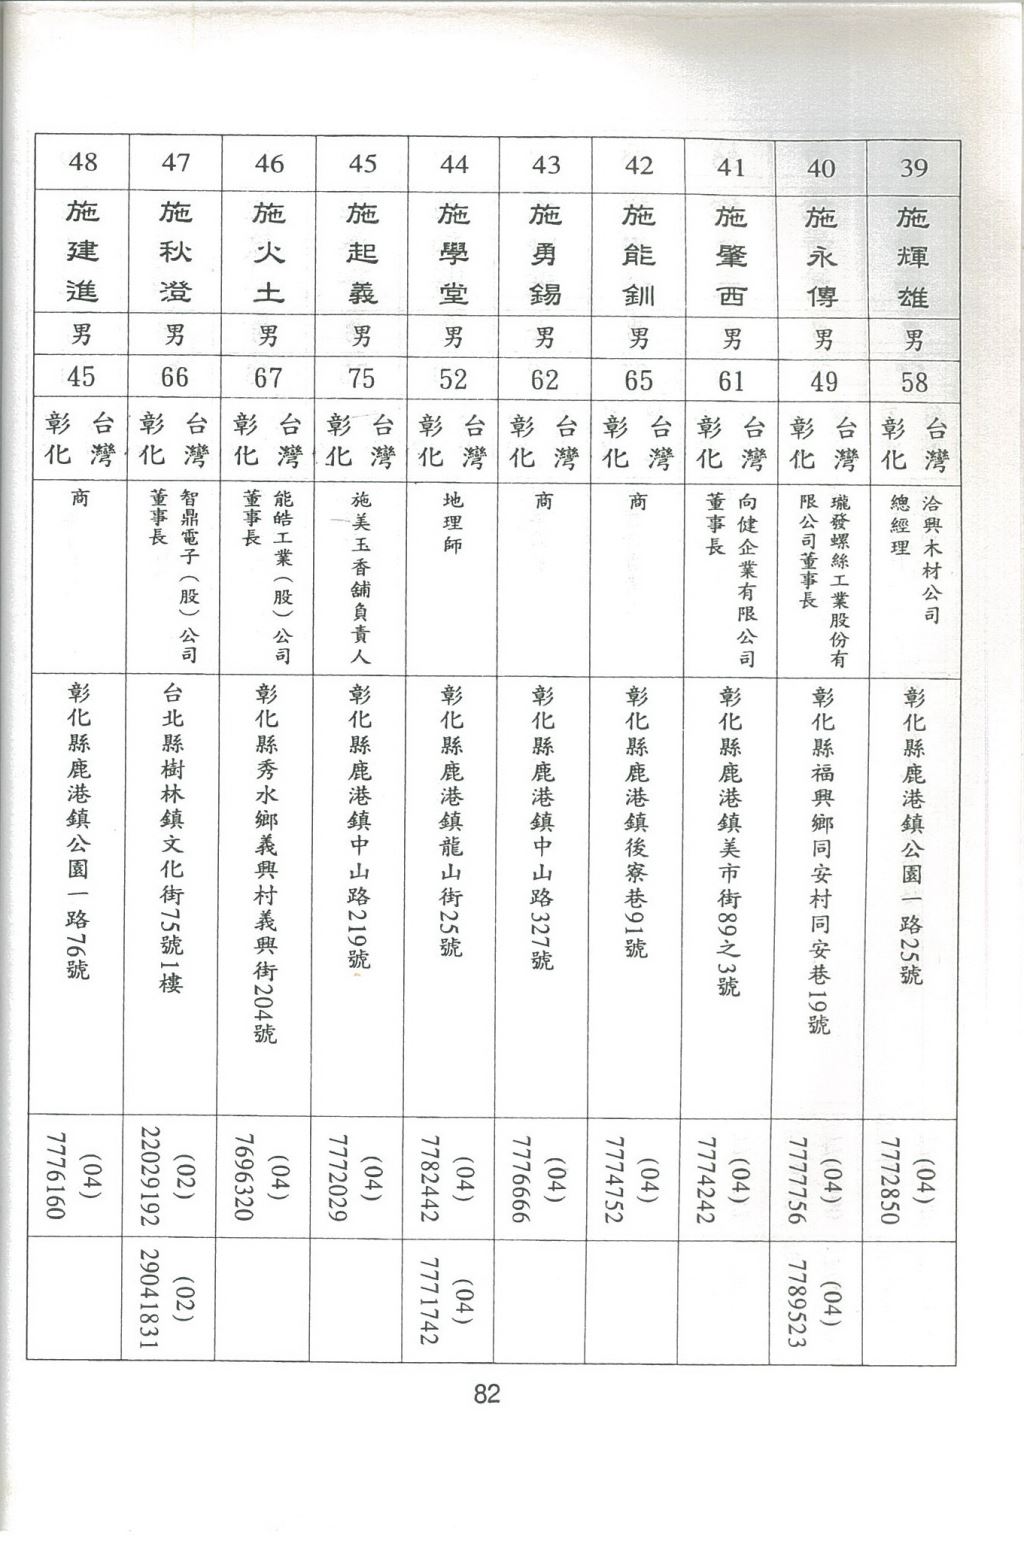 39
施輝雄
男
58
台灣
彰化
洽興木材公司
總經理
彰化縣鹿港鎮公園一路25號
(04)
7772850
40
施永傳
男
49
台灣
彰化
瓏發螺絲工業股份有
限公司董事長
彰化縣福興鄉同安村同安巷19號
(04)
7777756
(04)
7789523
41
施肇西
男
61
台灣
彰化
向健企業有限公司
董事長
彰化縣鹿港鎮美市街89之3號
(04)
7774242
42
施能釧
男
65
台灣
彰化
商
彰化縣鹿港鎮後寮巷91號
(04)
7774752
43
施勇錫
男
62
台灣
彰化
商
彰化縣鹿港鎮中山路327號
(04)
7776666
44
施學堂
男
52
台灣
彰化
地理師
彰化縣鹿港鎮龍山街25號
(04)
7782442
(04)
7771742
45
施起義
男
75
台灣
彰化
施美玉香舖負責人
彰化縣鹿港鎮中山路219號
(04)
7772029
46
施火土
男
67
台灣
彰化
能皓工業(股)公司
董事長
彰化縣秀水鄉義興村義興街204號
(04)
7696320
47
施秋澄
男
66
台灣
彰化
智鼎電子(股)公司
董事長
台北縣樹林鎮文化街75號1樓
(02)
22029192
(02)
29041831
48
施建進
男
45
台灣
彰化
商
彰化縣鹿港鎮公園一路76號
(04)
7776160
82